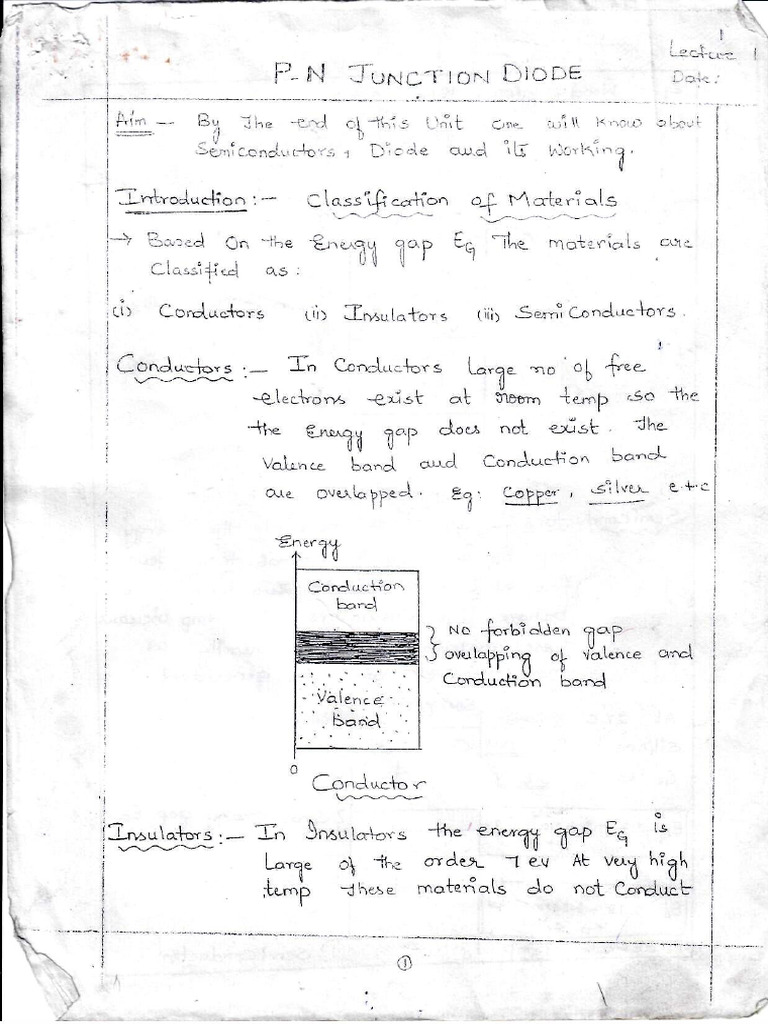 1
Lecture 1
P-N JUNCTION DIODE
Date:
Aim - By The end of this Unit one will know about
Semiconductors, Diode and its working.
Introduction:- Classification of Materials
→ Based On the Energy gap EG The materials are
Classified as:
(i) Conductors (ii) Insulators (iii) Semi Conductors.
Conductors:- In Conductors Large no of free
electrons exist at room temp so the
the Energy gap does not exist. The
Valence band and Conduction band
are overlapped. Eg: Copper, Silver e+c
Energy
Conduction
band
No forbidden gap
overlapping of valence and
Conduction band
Valence
Band
0
Conductor
Insulators:- In Insulators the energy gap EG is
Large of the order 7 ev At very high
temp These materials do not Conduct
1